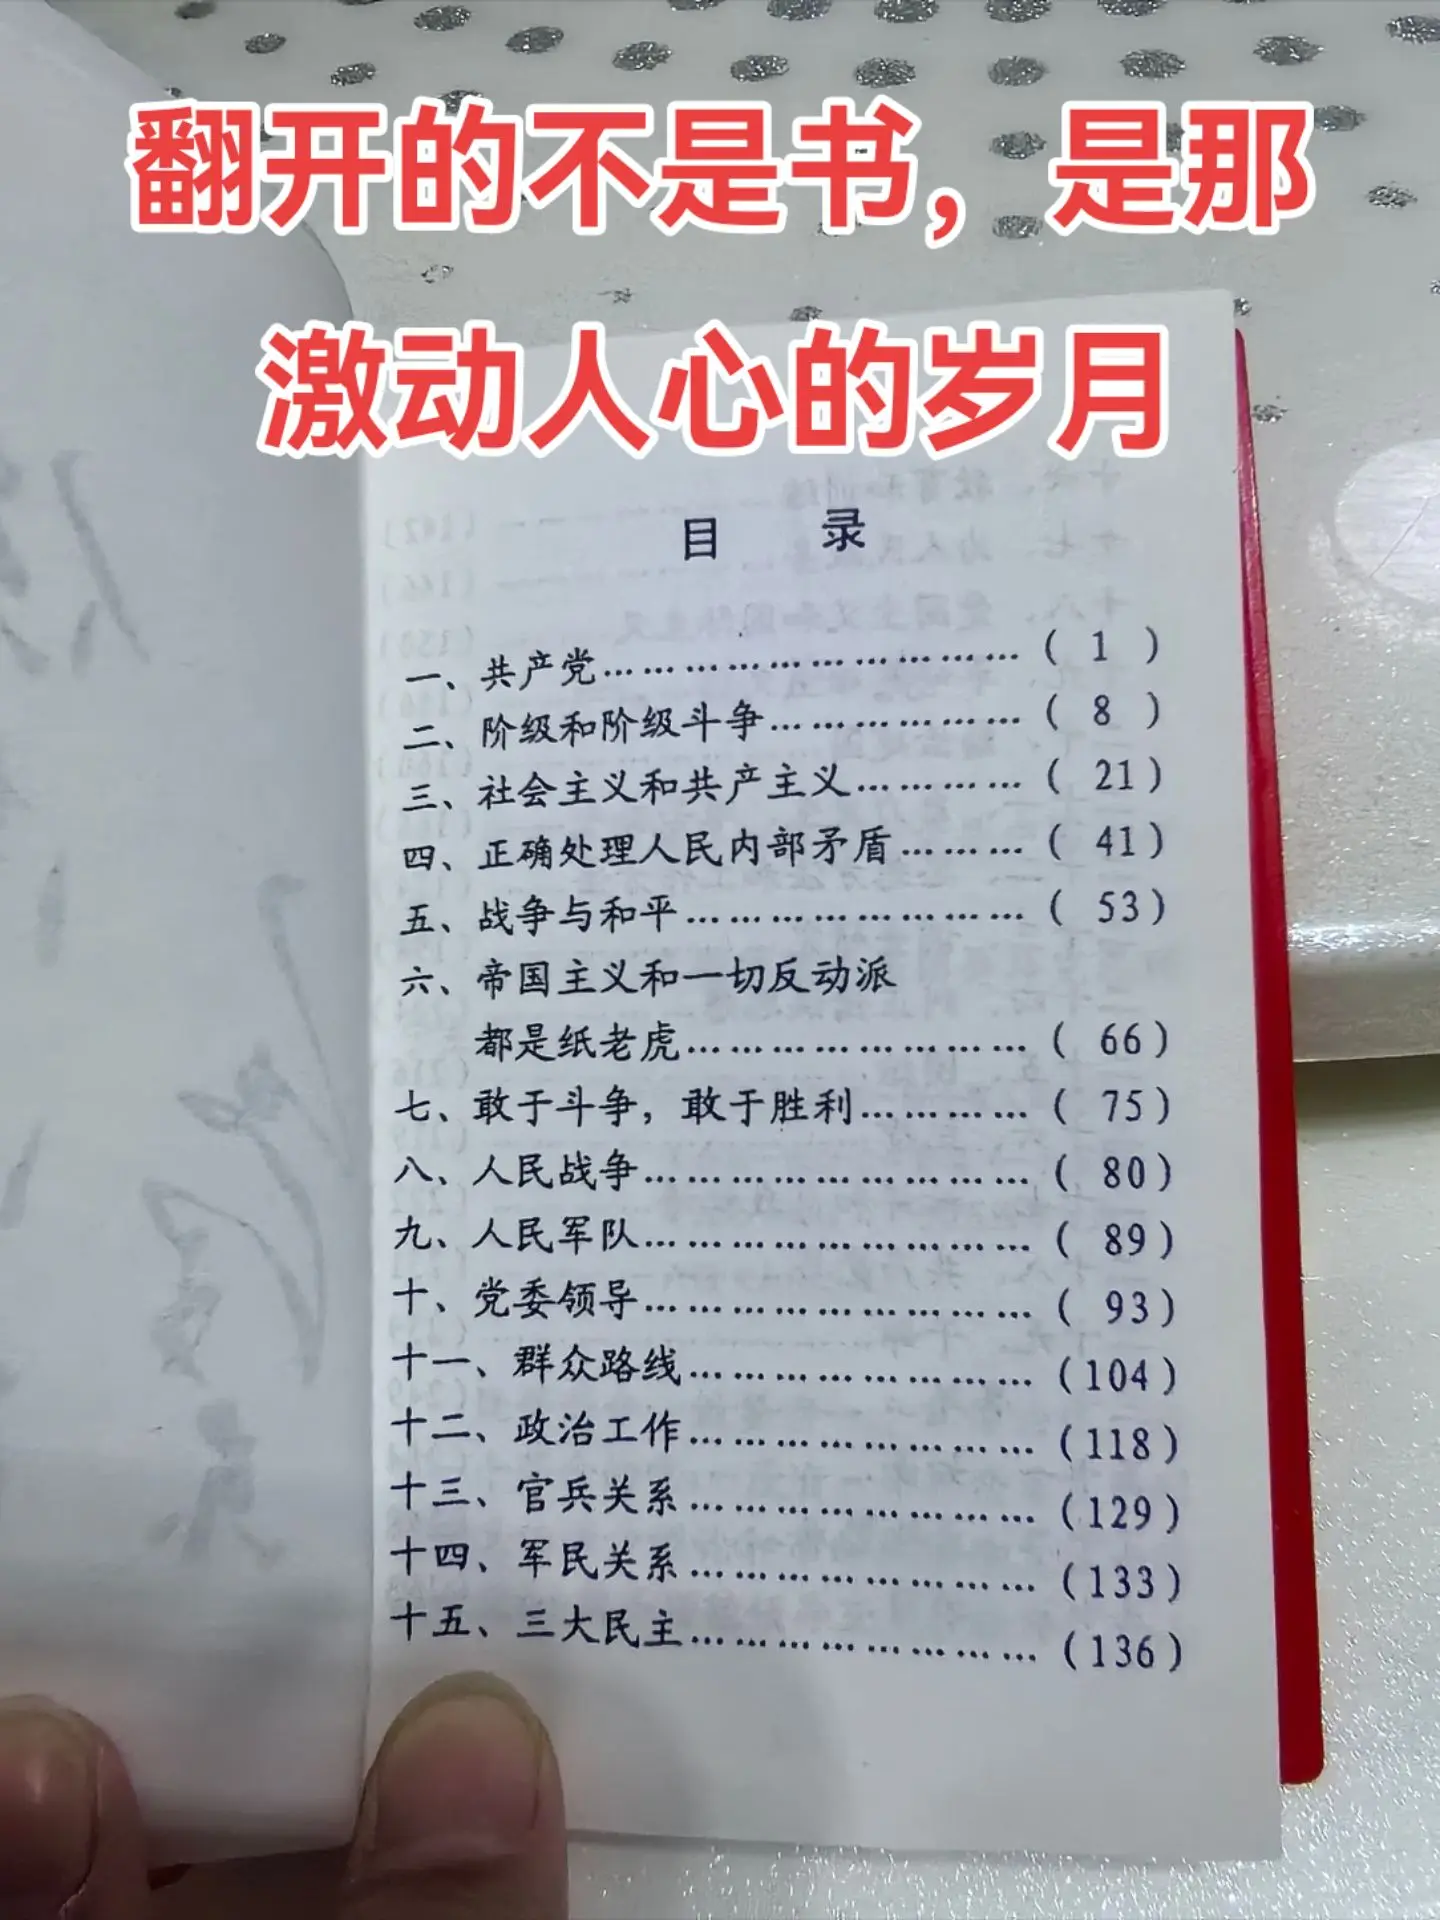 翻开的不是书，是那
激动人心的岁月
目 录
一、共产党……………………………( 1 )
二、阶级和阶级斗争………………( 8 )
三、社会主义和共产主义…………( 21)
四、正确处理人民内部矛盾………( 41)
五、战争与和平……………………( 53)
六、帝国主义和一切反动派
都是纸老虎……………………( 66)
七、敢于斗争，敢于胜利…………( 75)
八、人民战争………………………( 80)
九、人民军队………………………( 89)
十、党委领导………………………( 93)
十一、群众路线……………………(104)
十二、政治工作……………………(118)
十三、官兵关系……………………(129)
十四、军民关系……………………(133)
十五、三大民主……………………(136)